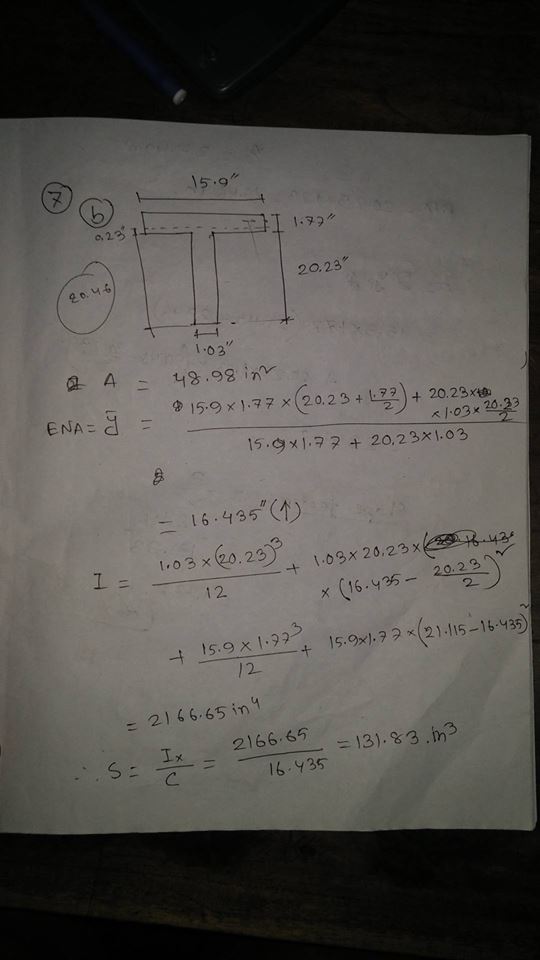 7 b
15.9"
0.23"
1.77"
20.46
20.23"
1.03"
A = 48.98 in²
ENA = ȳ = 15.9 × 1.77 × (20.23 + 1.77/2) + 20.23 × × 1.03 × 20.23/2
15.9 × 1.77 + 20.23 × 1.03
= 16.435" (↑)
I = 1.03 × (20.23)³/12 + 1.03 × 20.23 ×
× (16.435 - 20.23/2)²
+ 15.9 × 1.77³/12 + 15.9 × 1.77 × (21.115 - 16.435)²
= 2166.65 in⁴
∴ S = Ix/C = 2166.65/16.435 = 131.83 in³